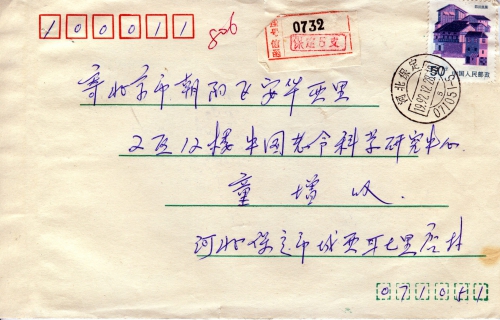 100011
806
0732
保定百支
50
中国人民邮政
河北保定
1992.12.
07105-15
寄北京市朝阳区安华西里
2区12楼中国老令科学研究中心
童增 收
河北保定市城西郊七里店村
071051